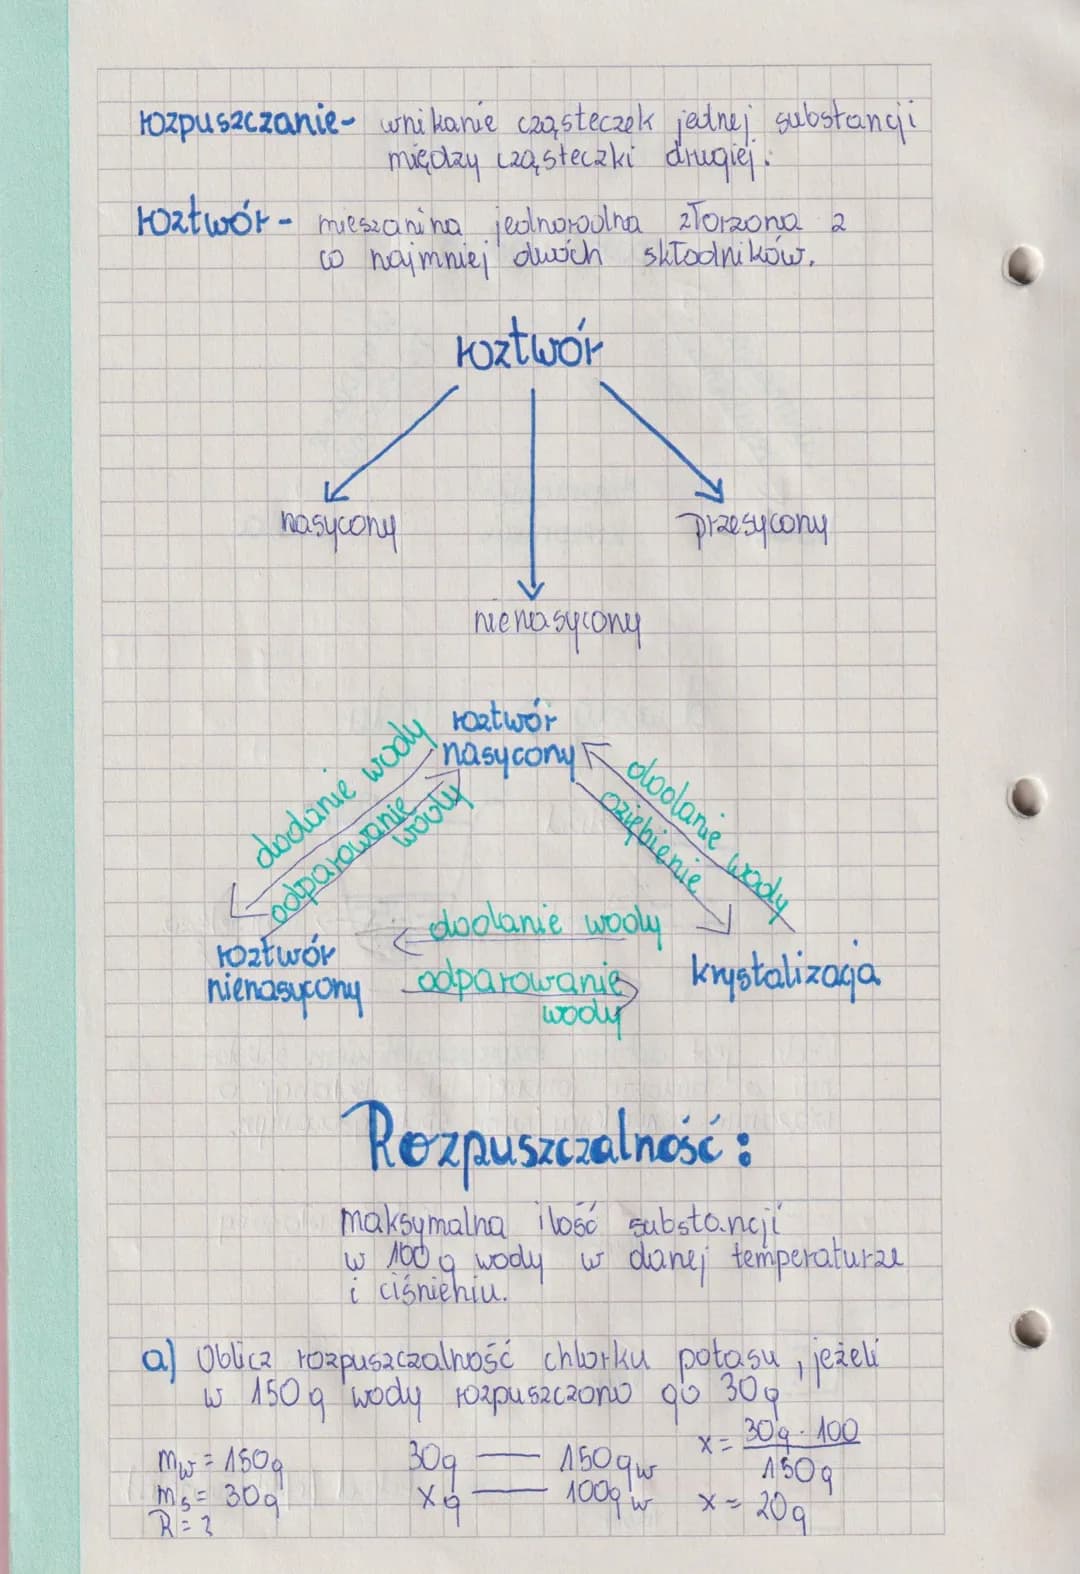 rozpuszczanie- wnikanie cząsteczek jednej substancji
między cząsteczki drugiej.
roztwór - mieszanina jednorodna złorzona z
co najmniej dwóch składników.
roztwór
nasycony
przesycony
nienasycony
roztwór
nasycony
dodanie wody
odparowanie
wody
dodanie wody
oziębienie
roztwór
nienasycony
dodanie wody
odparowanie
wody
krystalizacja
Rozpuszczalność:
maksymalna ilość substancji
w 100 g wody w danej temperaturze
i ciśnieniu.
a) Oblicz rozpuszczalność chlorku potasu, jeżeli
w 150 g wody rozpuszczono go 30g
mw = 150g
ms = 30g
R = ?
30g — 150g w
x g — 100g w
x = 30g · 100
150g
x = 20g